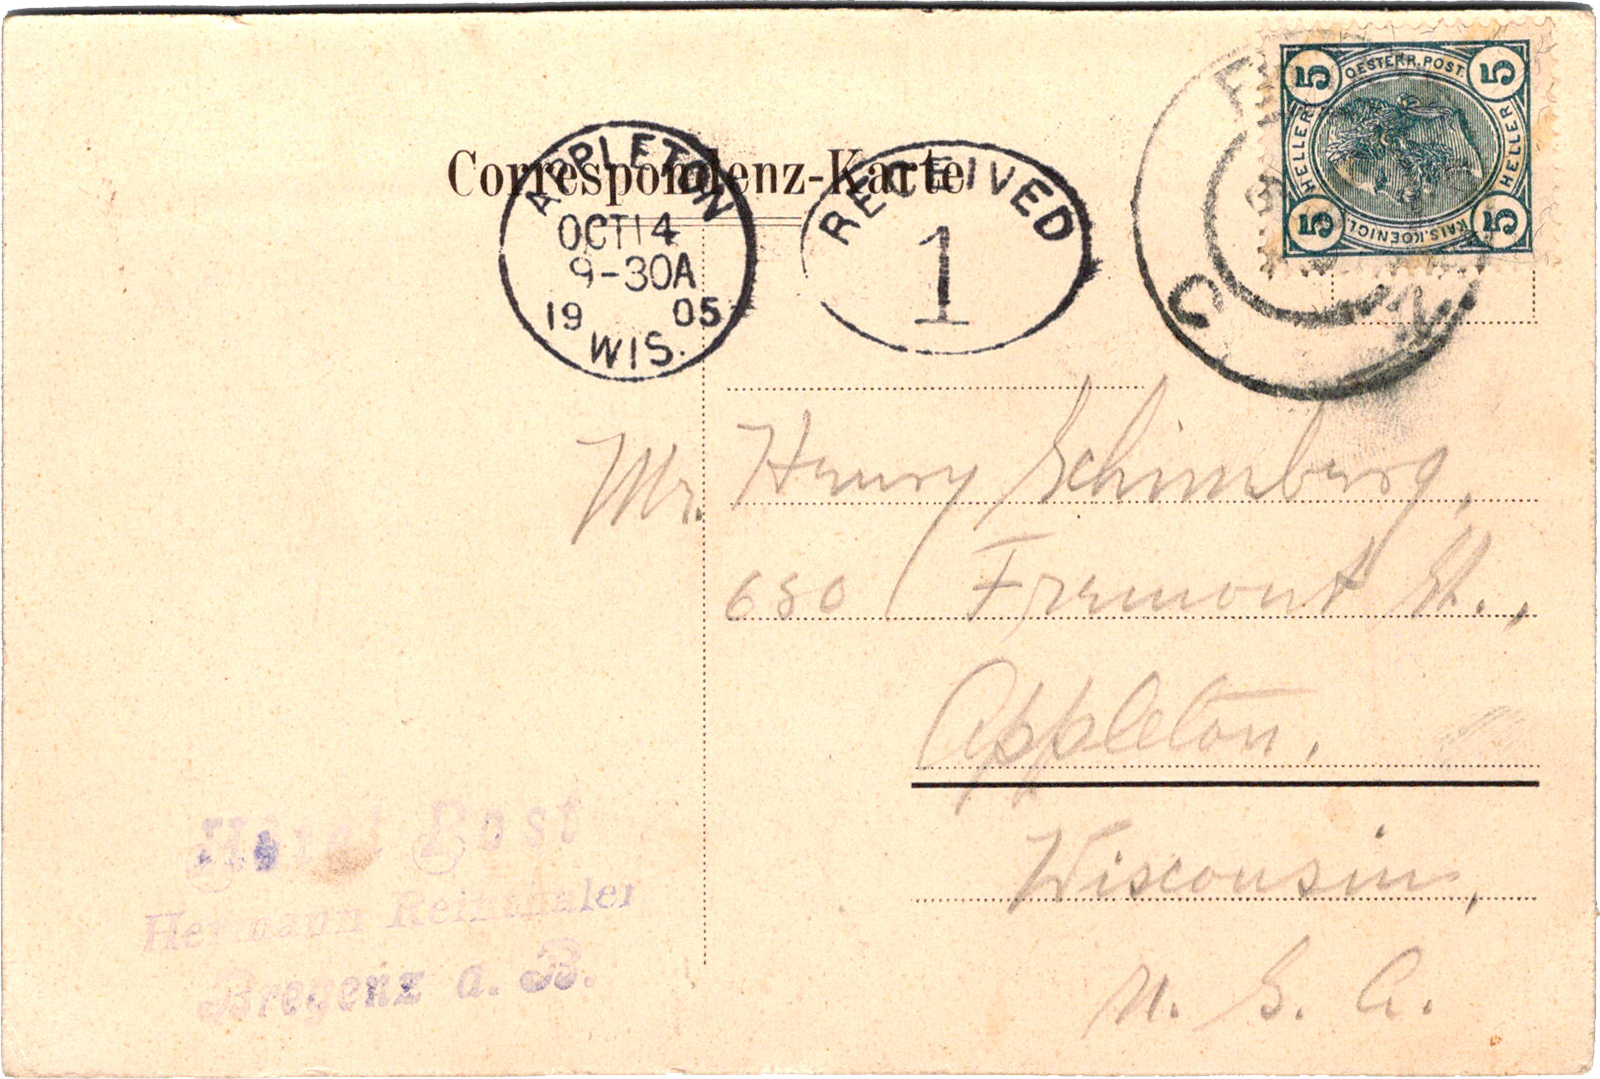 Correspondenz-Karte
APPLETON
OCT 14
9-30A
19 05
WIS.
RECEIVED
1
5 OESTERR. POST. 5
HELLER HELLER
5 KAIS. KOENIGL. 5
Mr. Henry Schimberg,
680 Fremont St.,
Appleton.
Wisconsin,
U. S. A.
Hôtel Post
Hermann
Bregenz a. B.